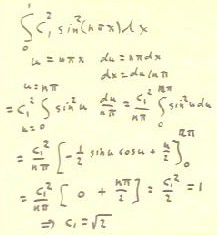 ∫₀¹ c₁² sin²(nπx) dx
u = nπx   du = nπdx
dx = du/nπ
= c₁² ∫_{u=0}^{u=nπ} sin²u du/nπ = c₁²/nπ ∫₀^{nπ} sin²u du
= c₁²/nπ [-½ sinu cosu + u/2]₀^{nπ}
= c₁²/nπ [0 + nπ/2] = c₁²/2 = 1
⇒ c₁ = √2